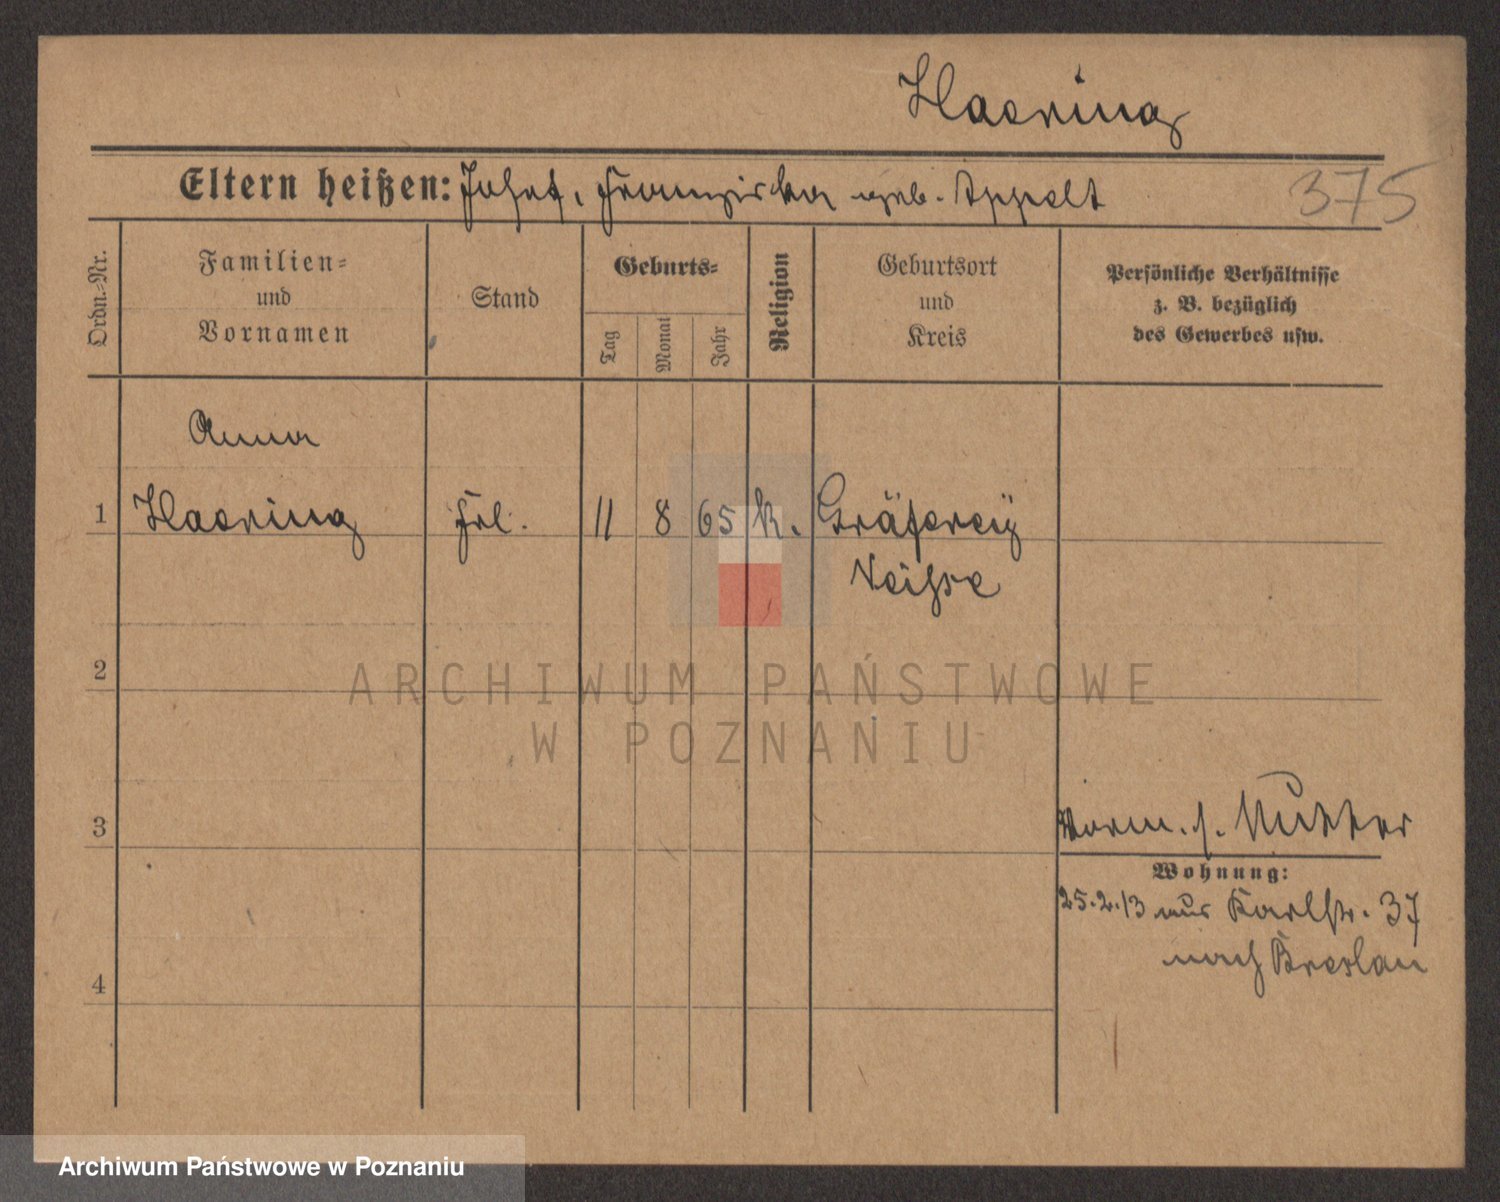 Haering
Eltern heißen: Josef, Franziska geb. Appelt
375
Ordn.-Nr.
Familien-
und
Vornamen
Stand
Geburts-
Tag
Monat
Jahr
Religion
Geburtsort
und
Kreis
Persönliche Verhältnisse
z. B. bezüglich
des Gewerbes usw.
Anna
1 Haering Frl. 11 8 65 k. Gräferei
Neisse
2
3
4
Vorm. s. Mutter
Wohnung:
25.2.13 aus Karlstr. 37
nach Breslau
ARCHIWUM PAŃSTWOWE
W POZNANIU
Archiwum Państwowe w Poznaniu